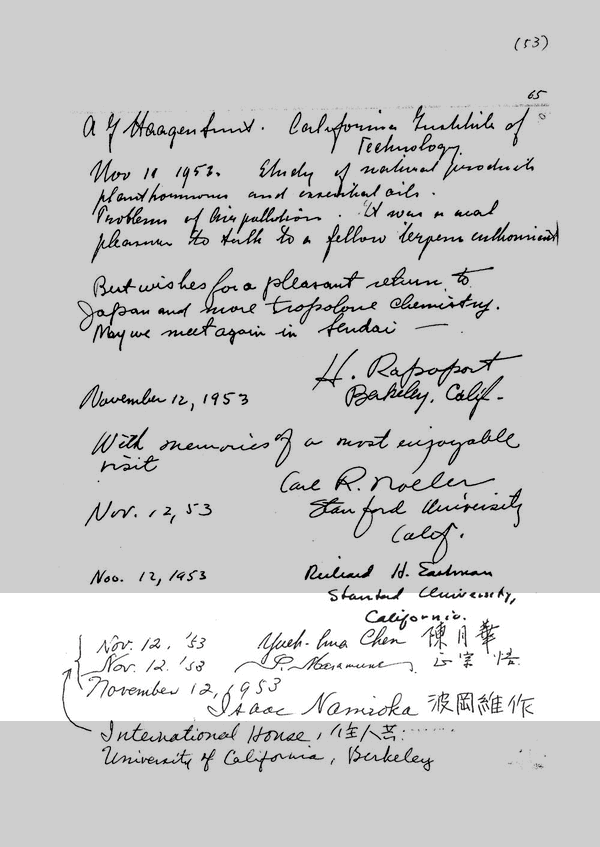 (53)
65
A J Haagen Smit. California Institute of
Technology.
Nov 11 1953. Study of natural products
planthormones and essential oils.
Problems of Air pollution. It was a real
pleasure to talk to a fellow terpene enthousiast
Best wishes for a pleasant return to
Japan and more tropolone chemistry.
May we meet again in Sendai —
H. Rapoport
November 12, 1953 Berkeley, Calif.
With memories of a most enjoyable
visit
Carl R. Noller
Nov. 12, 53 Stanford University
Calif.
Nov. 12, 1953 Richard H. Eastman
Stanford University,
California.
Nov. 12. '53 Yueh-hua Chen 陳月華
Nov. 12. '53 S. Masamune. 正宗 悟.
November 12, 1953
Isaac Namioka 波岡維作
International House,
University of California, Berkeley